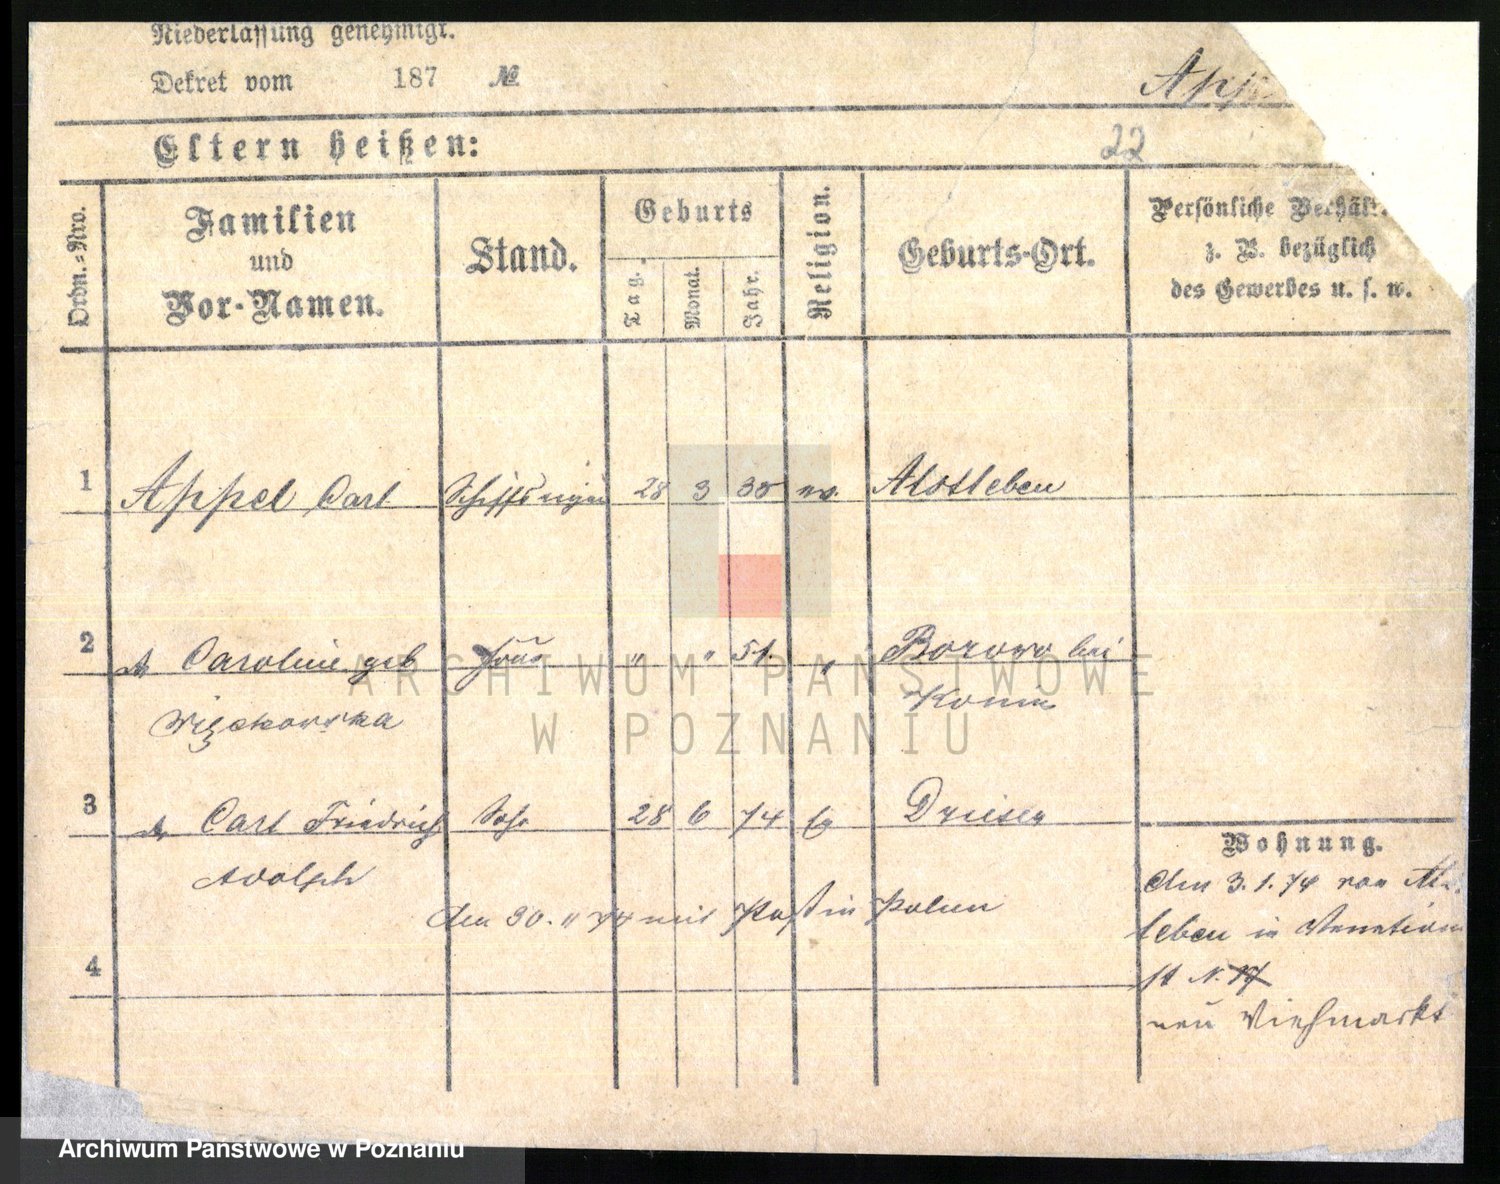 Niederlassung genehmigt.
Dekret vom 187 №
App
Eltern heißen:
22
Ordn.-Nro.
Familien
und
Vor-Namen.
Stand.
Geburts
Tag.
Monat.
Jahr.
Religion.
Geburts-Ort.
Persönliche Verhält
z. B. bezüglich
des Gewerbes u. s. w.
1 Appel Carl 28 3 ev. Alstleben
2 Caroline geb Frau " " 51. " Borowo bei
Konin
Więckowska
ARCHIWUM PAŃSTWOWE
W POZNANIU
3 Carl Friedrich Sohn 28 6 74 Driesen
Adolph
Wohnung.
den 3.1.74 von
den 30. " 74 mit Paß in Polen
leben in Venetian
4
st N. 17
neu Viehmarkt
Archiwum Państwowe w Poznaniu